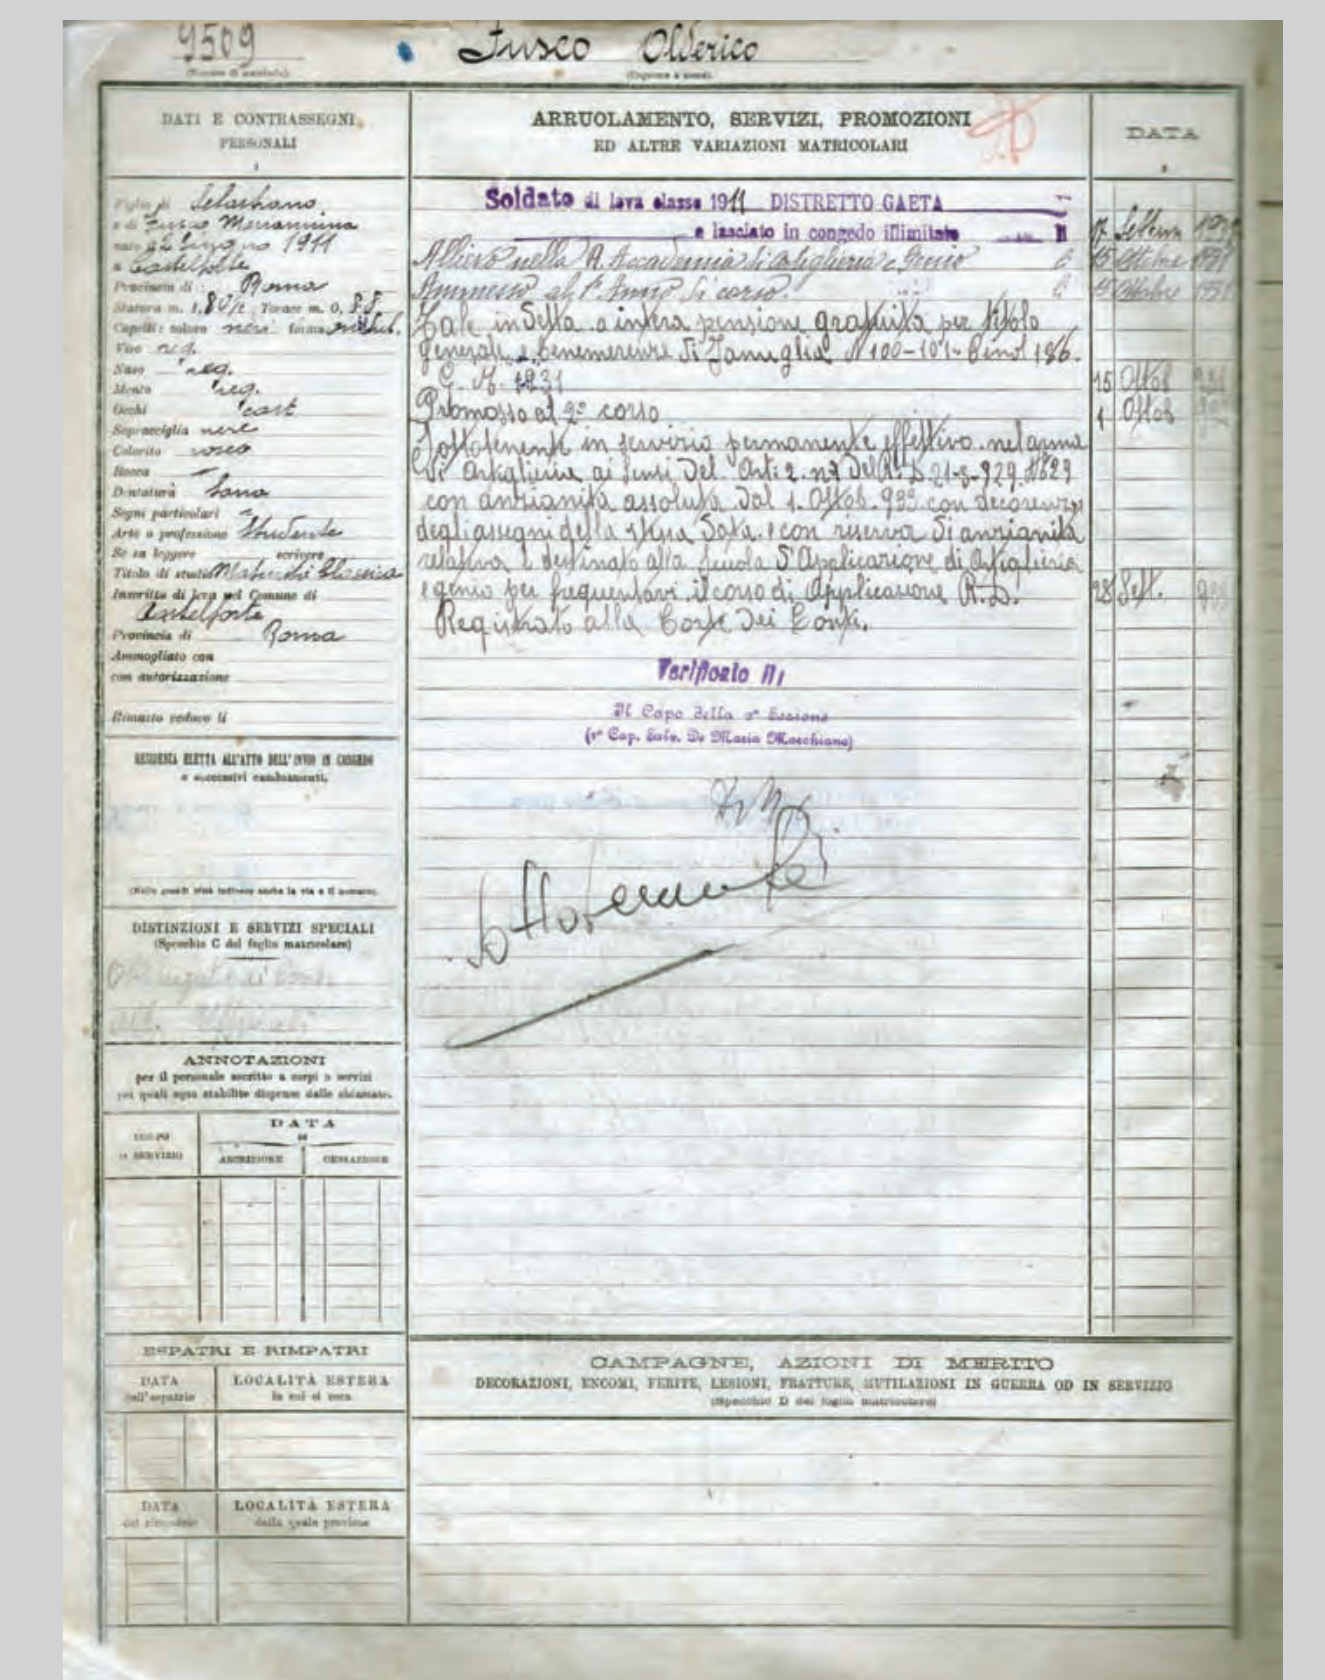 9509
Fusco Olderico
(Numero di matricola)
(Cognome e nome)
DATI E CONTRASSEGNI
PERSONALI
Figlio di Sebastiano
e di Fusco Mariannina
nato 1911
a Castelforte
Provincia di Roma
Statura m. 1,80 1/2 Torace m. 0,
Capelli: colore neri forma
Viso reg.
Naso reg.
Mento reg.
Occhi cast
Sopracciglia nere
Colorito roseo
Bocca
Dentatura sana
Segni particolari
Arte o professione Studente
Se sa leggere scrivere
Titolo di studio Classica
Inscritto di leva nel Comune di
Castelforte
Provincia di Roma
Ammogliato con
con autorizzazione
Rimasto vedovo li
RESIDENZA ELETTA ALL'ATTO DELL'INVIO IN CONGEDO
e successivi cambiamenti.
(Nelle grandi città indicare anche la via e il numero).
DISTINZIONI E SERVIZI SPECIALI
(Specchio C del foglio matricolare)
ANNOTAZIONI
per il personale ascritto a corpi o servizi
pei quali sono stabilite dispense dalle chiamate.
CORPO
o SERVIZIO
DATA
di
ASCRIZIONE
CESSAZIONE
ESPATRI E RIMPATRI
DATA
dell'espatrio
LOCALITÀ ESTERA
in cui si reca
DATA
del rimpatrio
LOCALITÀ ESTERA
dalla quale proviene
ARRUOLAMENTO, SERVIZI, PROMOZIONI
ED ALTRE VARIAZIONI MATRICOLARI
DATA
Soldato di leva classe 1911 DISTRETTO GAETA
e lasciato in congedo illimitato
Allievo nella R. Accademia di Artiglieria e Genio 15 Ottobre 1931
Ammesso al 1° Anno di corso. 15 Ottobre 1931
Tale in detta a intera pensione gratuita per titolo
generale e benemerenze di famiglia N 100-101-
G. M. 1931 15 Ottob 931
Promosso al 2° corso 1 Ottob
Sottotenente in servizio permanente effettivo nel arma
di Artiglieria ai sensi del Art. 2. del R. D. 21-3-929
con anzianità assoluta dal 1. Ottob. 933 con decorenza
degli assegni della stessa data e con riserva di anzianità
relativa e destinato alla Scuola d'Applicazione di Artiglieria
e genio per frequentarvi il corso di Applicazione R. D. 28 Sett. 933
Registrato alla Corte dei Conti.
Verificato
Il Capo della 2ª Sezione
(1° Cap. Salv. De Maria Marchiano)
Sottotenente
CAMPAGNE, AZIONI DI MERITO
DECORAZIONI, ENCOMI, FERITE, LESIONI, FRATTURE, MUTILAZIONI IN GUERRA OD IN SERVIZIO
(Specchio D del foglio matricolare)